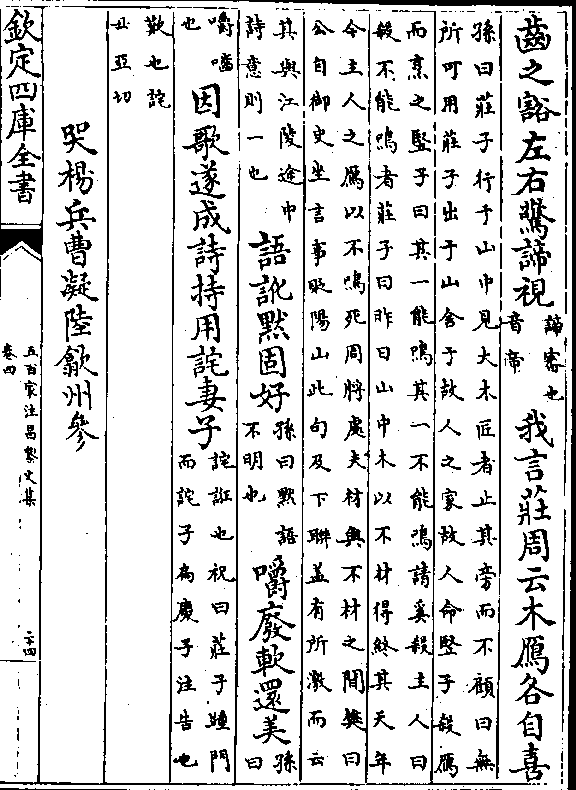 齒之豁左右驚諦視
諦審也
音帝
我言莊周云木鴈各自喜
孫曰莊子行于山中見大木匠者止其旁而不顧曰無
所可用莊子出于山舍于故人之家故人命竪子殺鴈
而烹之竪子曰其一能鳴其一不能鳴請奚殺主人曰
殺不能鳴者莊子曰昨日山中木以不材得終其天年
今主人之鴈以不鳴死周將處夫材與不材之間樊曰
公自御史坐言事貶陽山此句及下聯葢有所激而云
其與江陵途中
詩意則一也
語訛默固好
孫曰默語
不明也
嚼廢軟還美
孫
曰
嚼噬
也
因歌遂成詩持用詫妻子
詫誑也祝曰莊子踵門
而詫子扁慶子注告也
歎也詫
丑亞切
哭楊兵曹凝陸歙州參
欽定四庫全書
五百家注昌黎文集
卷四
二四